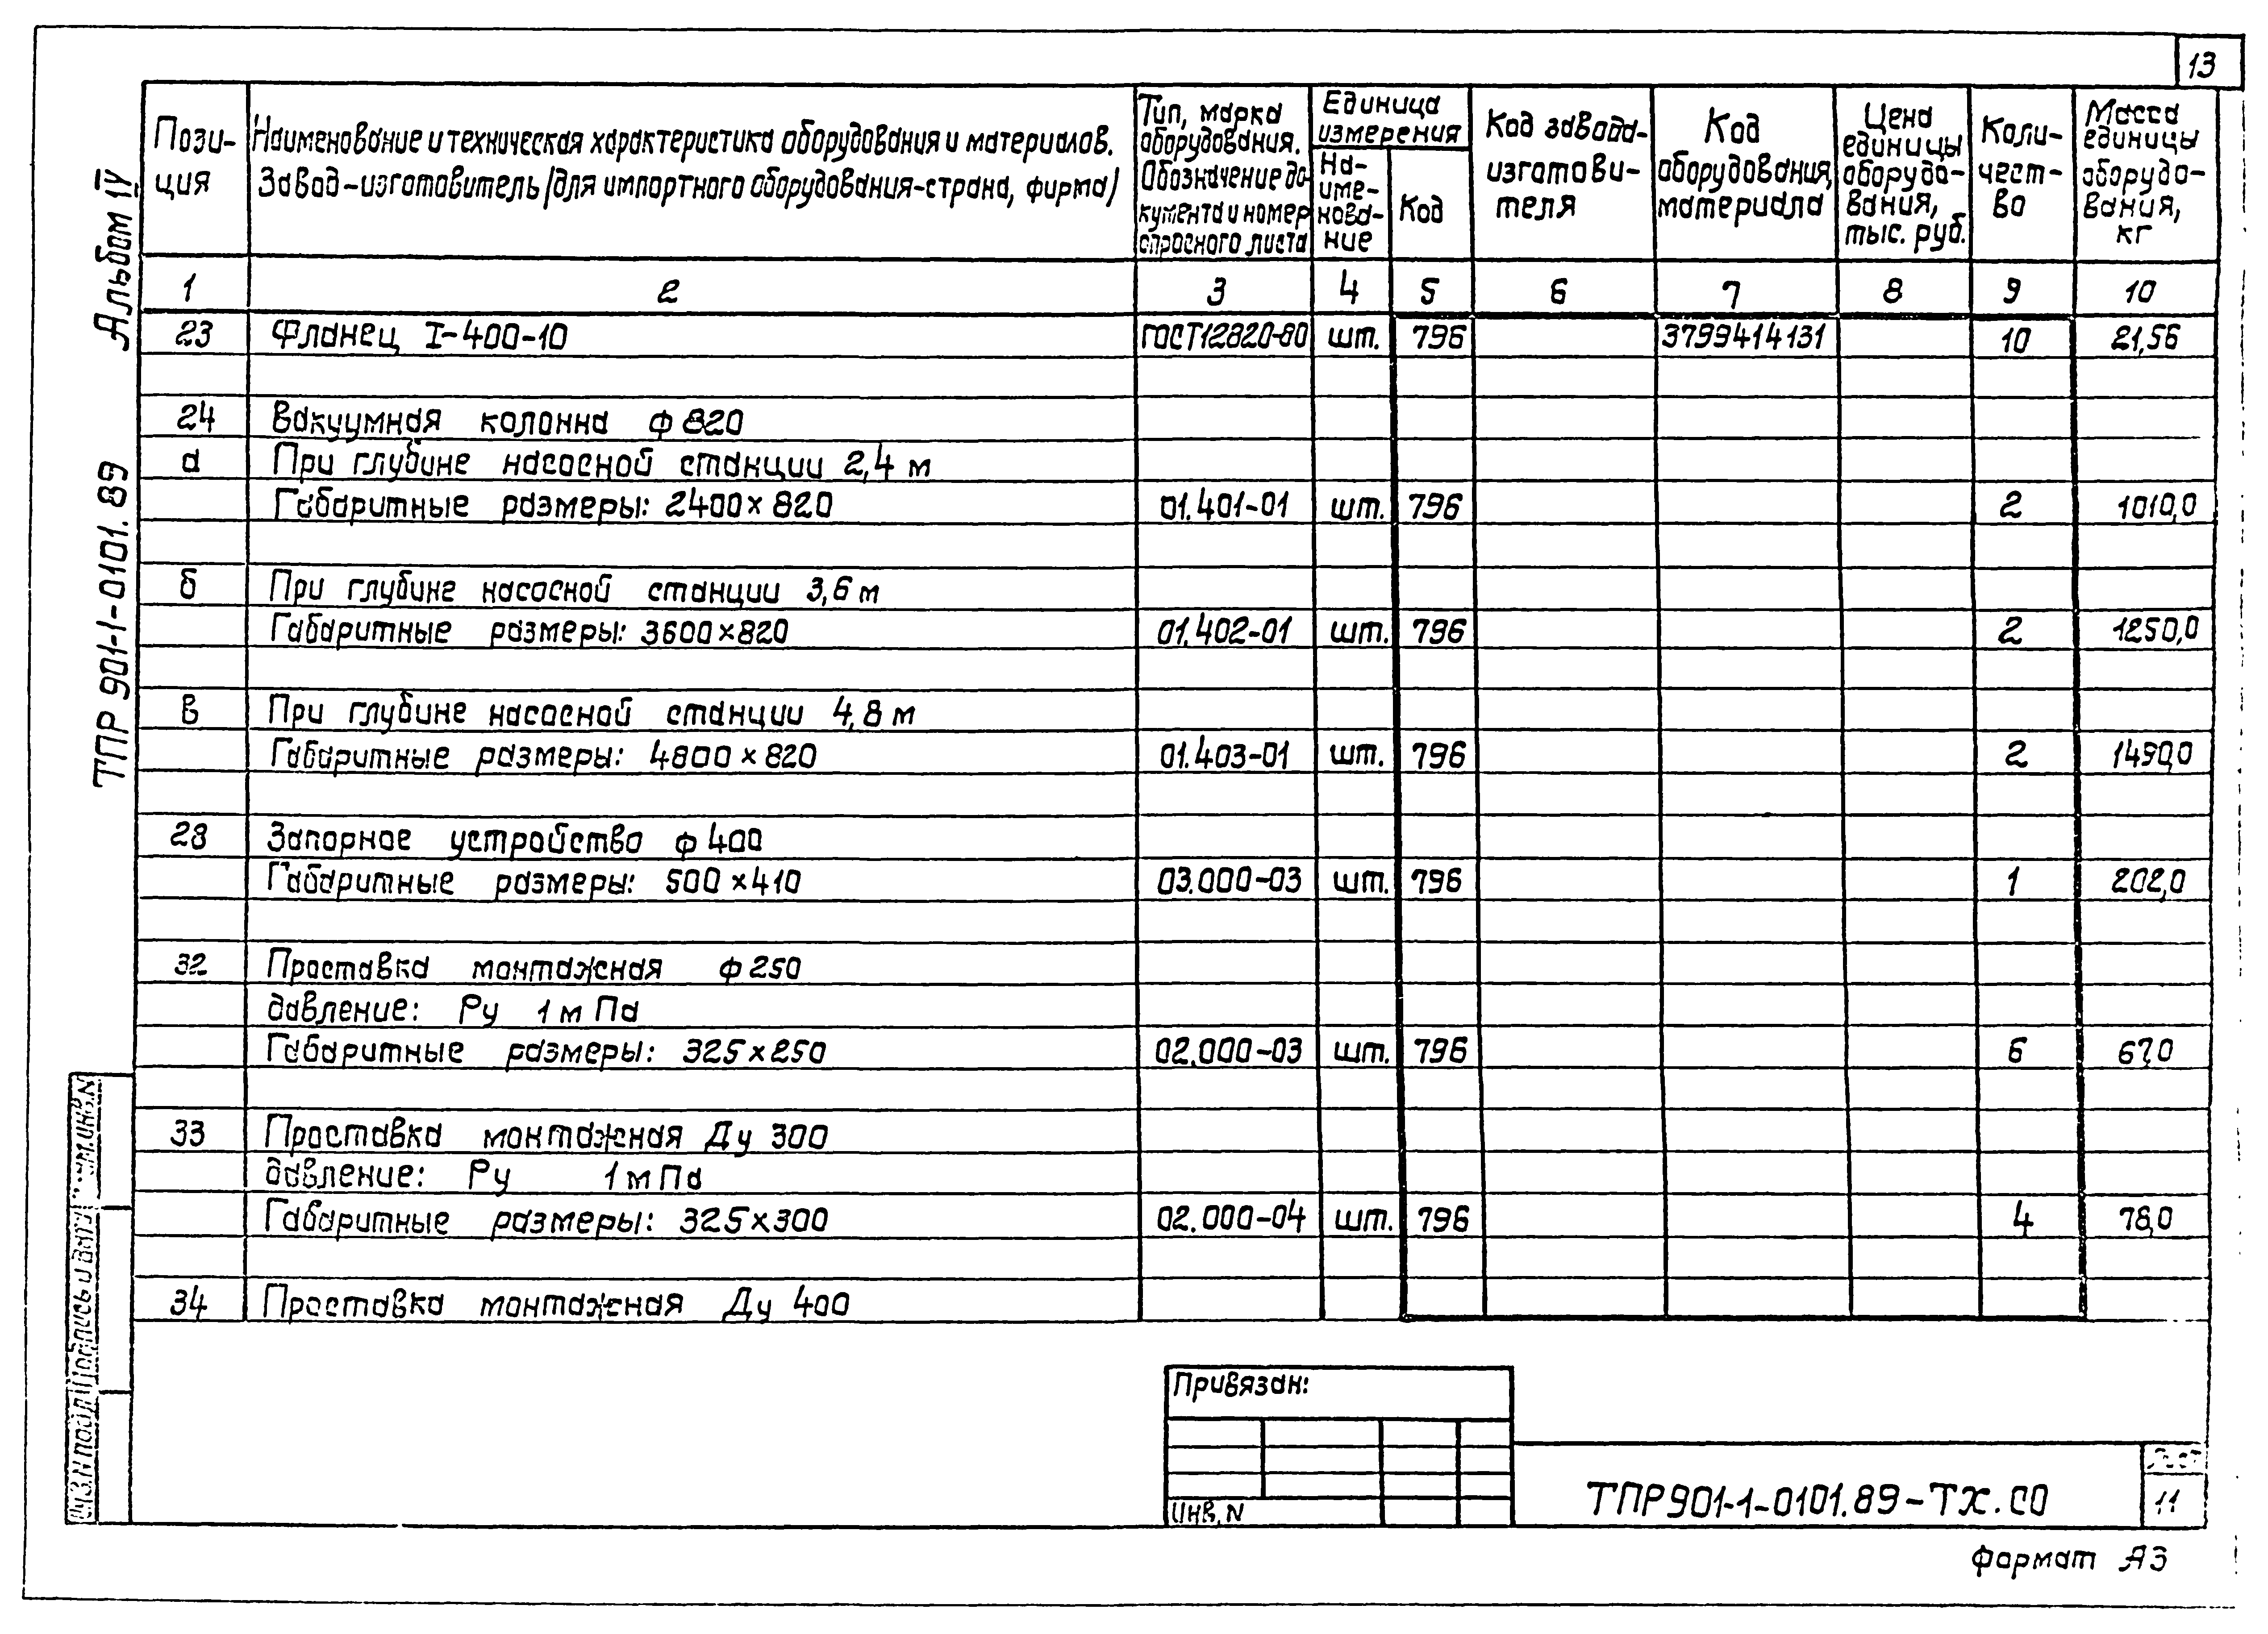 13
Альбом IV
ТПР 901-1-0101.89
Пози-
ция
Наименование и техническая характеристика оборудования и материалов.
Завод-изготовитель (для импортного оборудования-страна, фирма)
Тип, марка
оборудования.
Обозначение до-
кумента и номер
опросного листа
Единица
измерения
На-
име-
нова-
ние
Код
Код завода-
изготови-
теля
Код
оборудования,
материала
Цена
единицы
оборудо-
вания,
тыс. руб.
Коли-
чест-
во
Масса
единицы
оборудо-
вания,
кг
1 2 3 4 5 6 7 8 9 10
23 Фланец I-400-10 ГОСТ12820-80 шт. 796 3799414131 10 21,56
24 Вакуумная колонна ф 820
а При глубине насосной станции 2,4 м
Габаритные размеры: 2400×820 01.401-01 шт. 796 2 1010,0
б При глубине насосной станции 3,6 м
Габаритные размеры: 3600×820 01.402-01 шт. 796 2 1250,0
в При глубине насосной станции 4,8 м
Габаритные размеры: 4800×820 01.403-01 шт. 796 2 1490,0
28 Запорное устройство ф 400
Габаритные размеры: 500×410 03.000-03 шт. 796 1 202,0
32 Проставка монтажная ф 250
давление: Ру 1 мПа
Габаритные размеры: 325×250 02.000-03 шт. 796 6 67,0
33 Проставка монтажная Ду 300
давление: Ру 1 мПа
Габаритные размеры: 325×300 02.000-04 шт. 796 4 78,0
34 Проставка монтажная Ду 400
Привязан:
Инв. N
ТПР901-1-0101.89-ТХ.СО
Лист
11
Формат А3
Подпись и дата